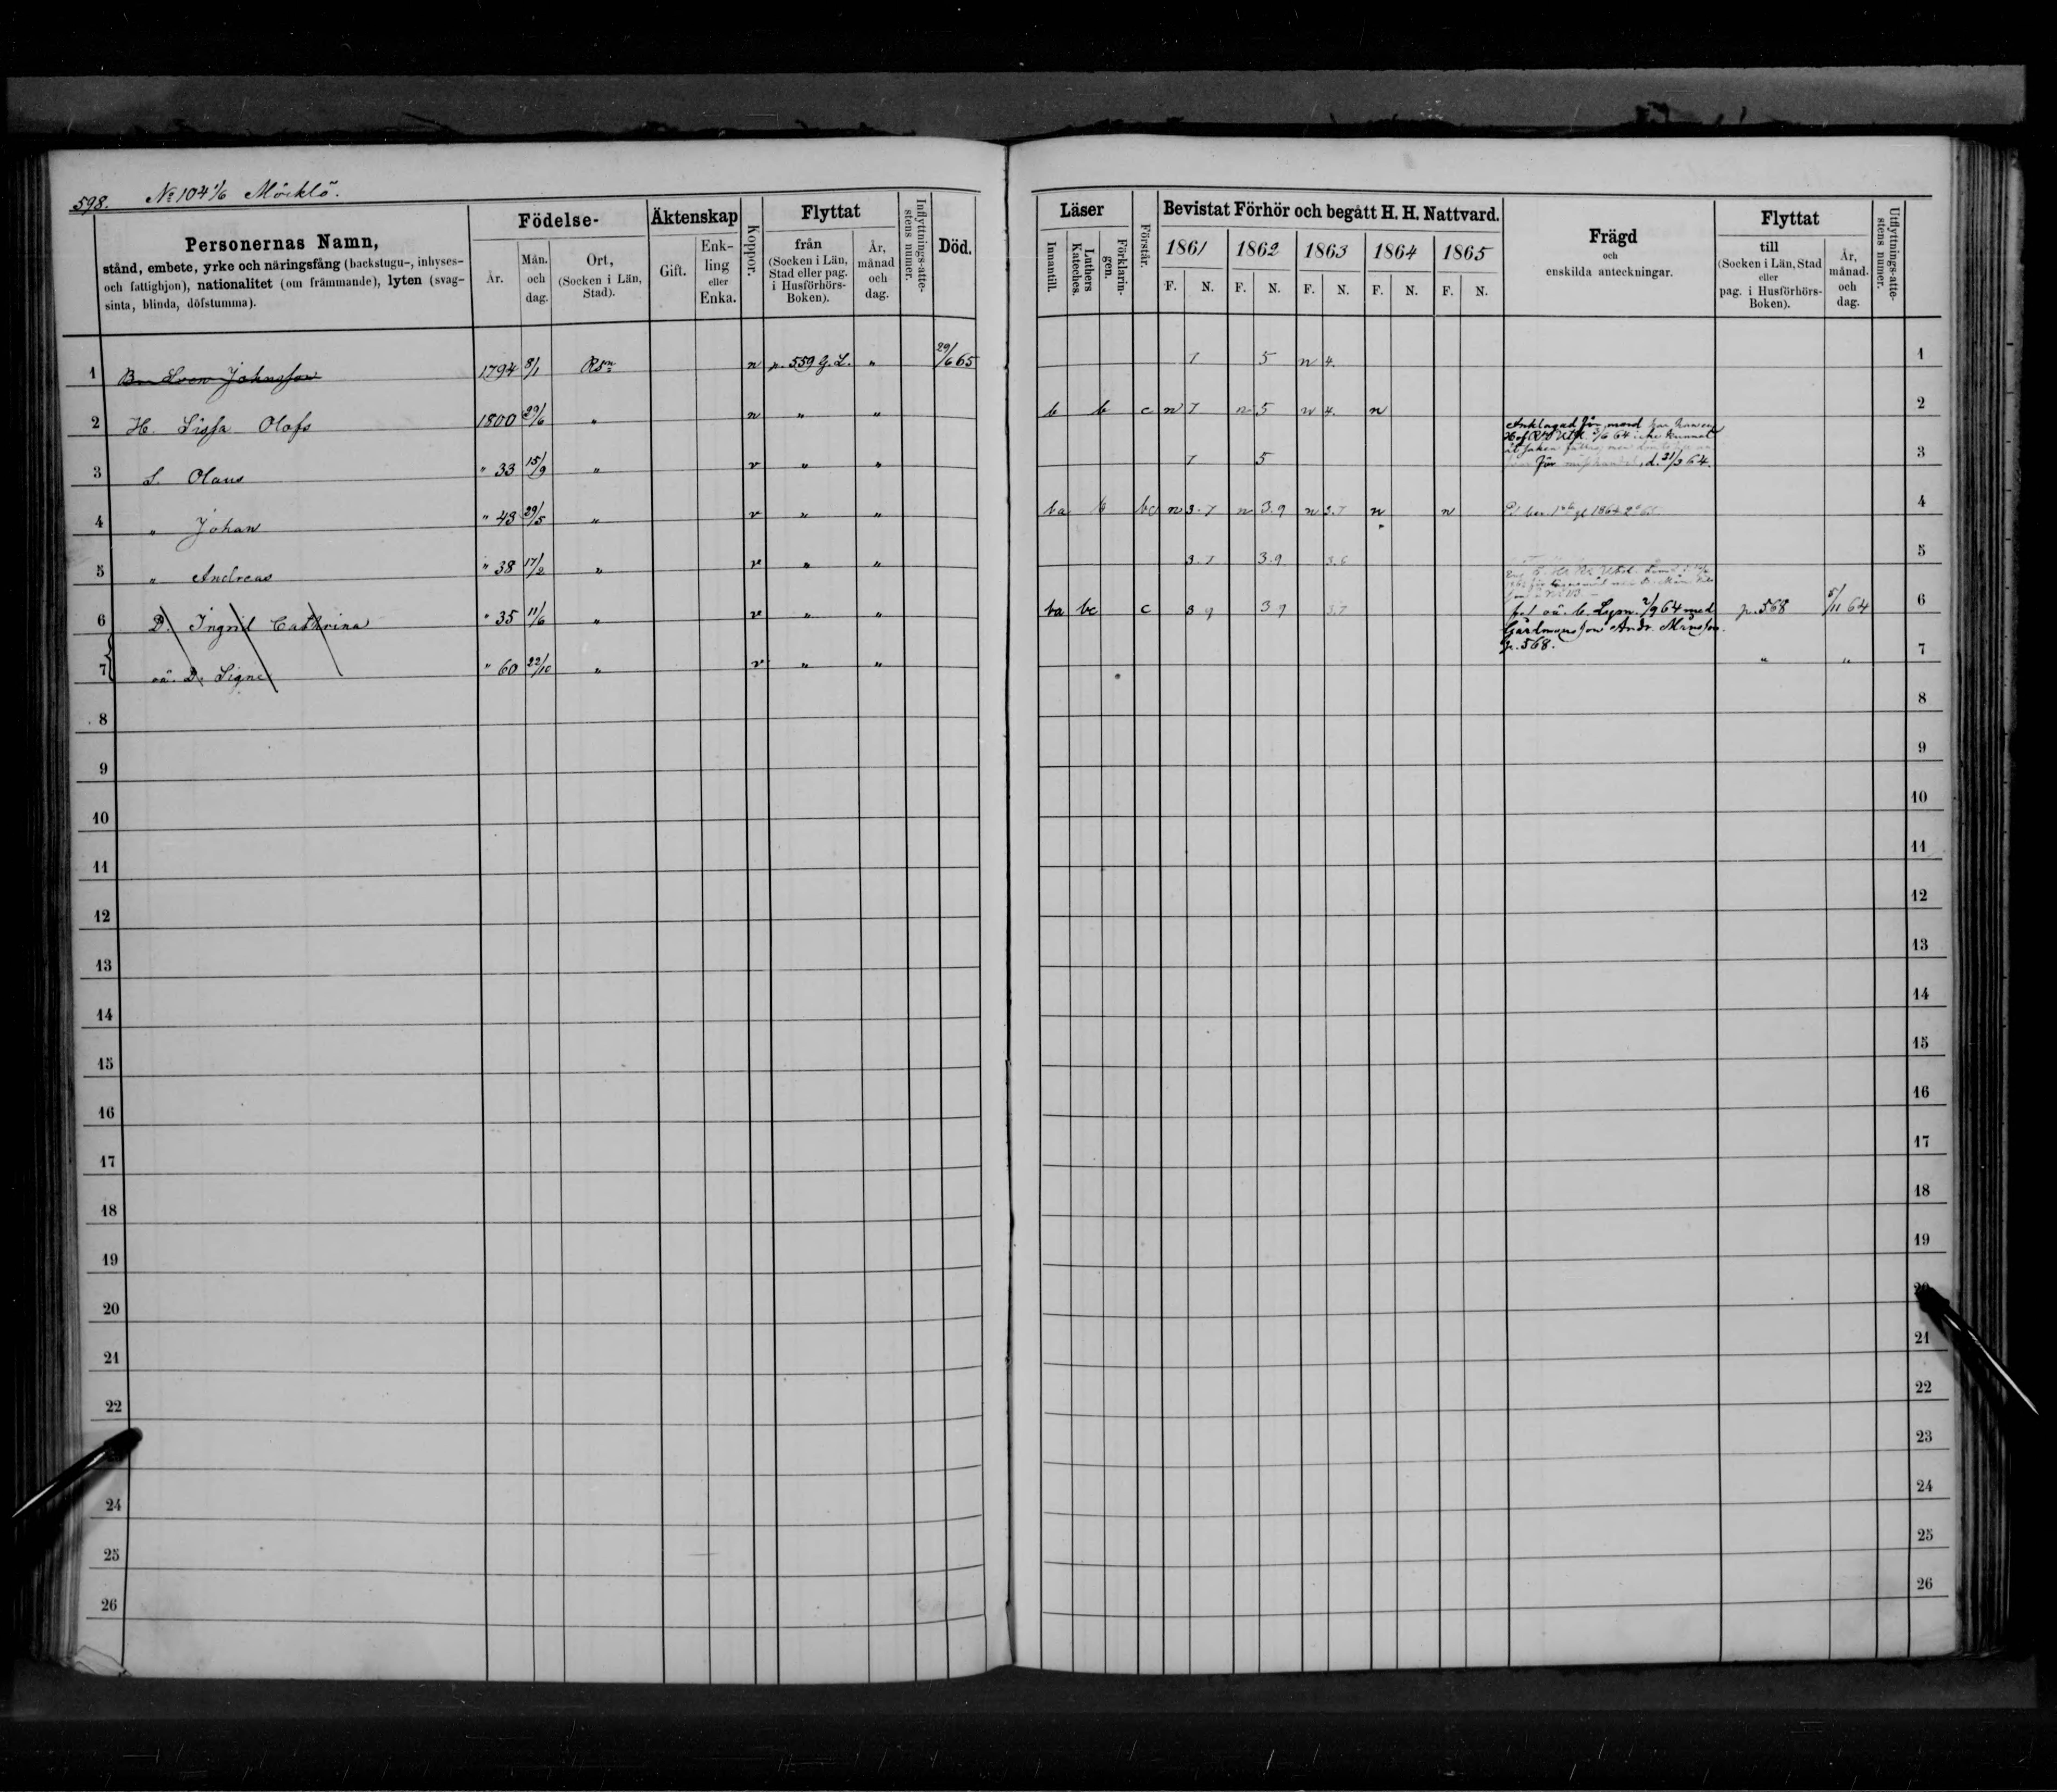 598. No 104 1/6 Möcklö.
Personernas Namn,
stånd, embete, yrke och näringsfång (backstugu-, inhyses-
och fattighjon), nationalitet (om främmande), lyten (svag-
sinta, blinda, döfstumma).
Födelse-
År.
Mån.
och
dag.
Ort,
(Socken i Län,
Stad).
Äktenskap
Gift.
Enk-
ling
eller
Enka.
Koppor.
Flyttat
från
(Socken i Län,
Stad eller pag.
i Husförhörs-
Boken).
År,
månad
och
dag.
Inflyttnings-atte-
stens numer.
Död.
1 Sven Johnsson 1794 8/1 Rsn n p. 559 G. L. " 29/6 65
2 H. Sissa Olofs 1800 29/6 " n " "
3 S. Olaus " 33 15/9 " v " "
4 " Johan " 43 29/5 " v " "
5 " Andreas " 38 17/2 " v " "
6 D. Ingrid Cathrina " 35 11/6 " v " "
7 oä. D. Signe " 60 22/10 " v " "
8
9
10
11
12
13
14
15
16
17
18
19
20
21
22
24
25
26
Läser
Innantill.
Luthers
Kateches.
Förklarin-
gen.
Förstår.
Bevistat Förhör och begått H. H. Nattvard.
1861 1862 1863 1864 1865
F. N. F. N. F. N. F. N. F. N.
Frägd
och
enskilda anteckningar.
Flyttat
till
(Socken i Län, Stad
eller
pag. i Husförhörs-
Boken).
År,
månad.
och
dag.
Utflyttnings-atte-
stens numer.
7 5 n 4. 1
b b c n 7 n 5 n 4. n 2
Anklagad för mord har han
64 icke kunnat
7 5 3
för d. 31/3 64.
ba b bc n 3.7 n 3.9 n 3.7 n n 1864 4
3.7 3.9 3.6 5
ba bc c 3 9 3 9 3.7 oä. b. Lysn. 2/9 64 med p. 568 5/11 64 6
Gårdmansson Andr. Månsson.
p. 568.
" " 7
8
9
10
11
12
13
14
15
16
17
18
19
20
21
22
23
24
25
26